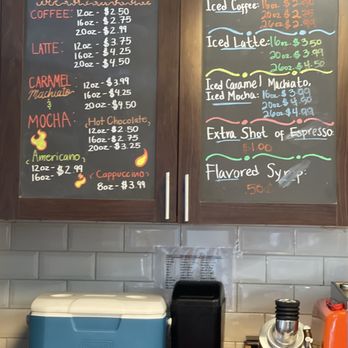 COFFEE: 12oz - $2.50
16oz - $2.75
20oz - $2.99
LATTE: 12oz - $3.75
16oz - $4.25
20oz - $4.50
CARAMEL 12oz - $3.99
Machiato 16oz - $4.25
& 20oz - $4.50
MOCHA: Hot Chocolate
12oz - $2.50
16oz - $2.75
20oz - $3.25
Americano
12oz - $2.99
16oz -
Cappuccino
8oz - $3.99
Iced Coffee: 16oz $2.50
20oz $2.75
26oz $2.99
Iced Latte: 16oz $3.50
20oz $3.99
26oz $4.50
Iced Caramel Machiato,
Iced Mocha: 16oz $3.99
20oz $4.50
26oz $4.99
Extra Shot of Espresso
$1.00
Flavored Syrp:
.50¢